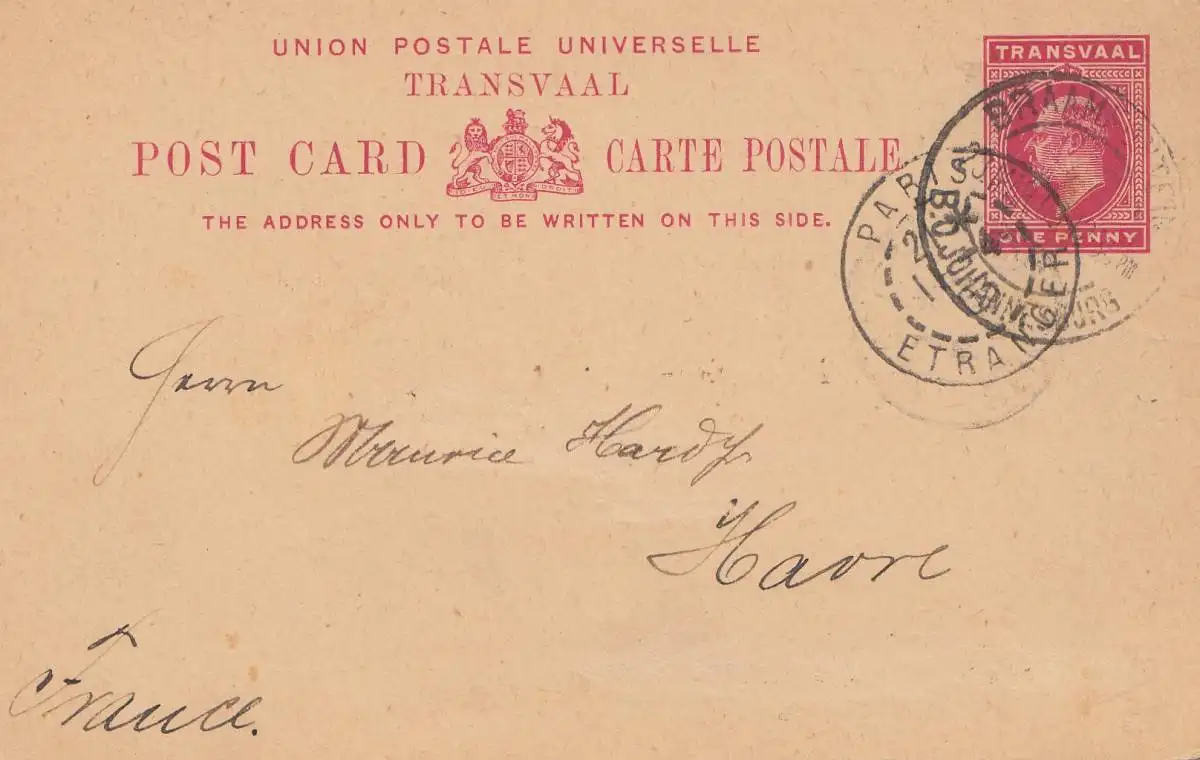 UNION POSTALE UNIVERSELLE
TRANSVAAL
POST CARD CARTE POSTALE
THE ADDRESS ONLY TO BE WRITTEN ON THIS SIDE.
TRANSVAAL
ONE PENNY
PARIS
ETRANGER
B.O. JOHANNESBURG
Herrn
Maurice Hardy
Havre
France.